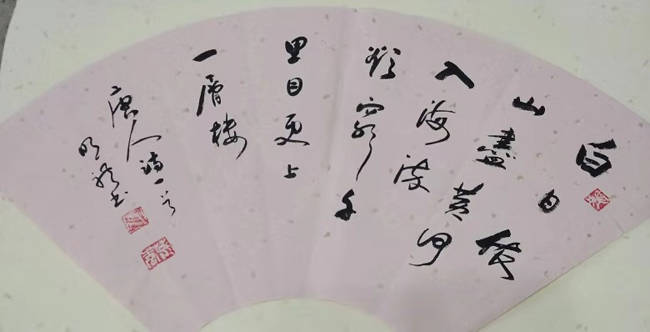 白日依
山盡黄河
入海流
欲窮千
里目更上
一層楼
唐人诗一首